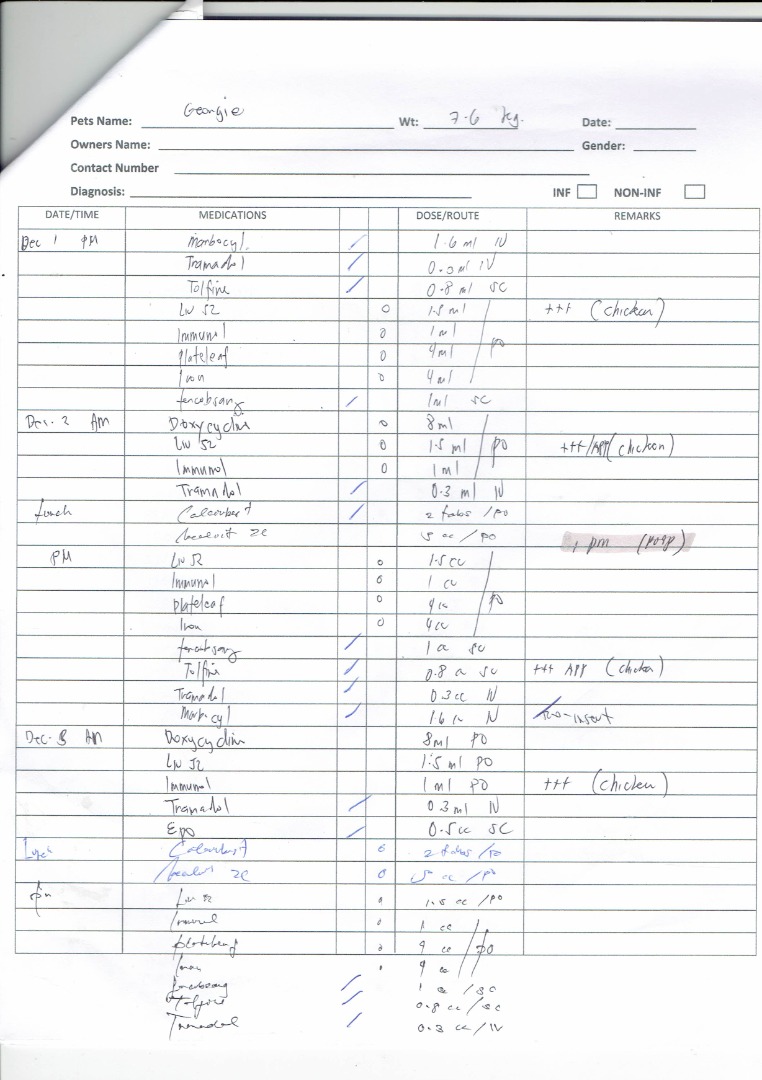 Georgie
Pets Name: Wt: 7.6 kg. Date:
Owners Name: Gender:
Contact Number
Diagnosis: INF NON-INF
DATE/TIME MEDICATIONS DOSE/ROUTE REMARKS
Dec 1 PM Marbocyl. 1.6 ml IV
Tramadol IV
Tolfine 0.8 ml SC
LIV 52 0 1.5 ml +++ (chicken)
Immunol 0 1 ml
plateleaf 0 4 ml PO
Iron 0 4 ml
1 ml SC
Dec. 2 AM Doxycyclin 0 8 ml
LIV 52 0 1.5 ml PO +++/APP (chicken)
Immunol 0 1 ml
Tramadol 0.3 ml IV
Lunch 2 tabs /PO
2c 5 cc /PO
1 pm (poop)
PM LIV 52 0 1.5 cc
Immunol 0 1 cc
plateleaf 0 4 cc PO
Iron 0 4 cc
1 cc SC
Tolfine 0.8 cc SC +++ APP (chicken)
Tramadol 0.3 cc IV
Marbocyl 1.6 cc IV
Dec. 3 AM Doxycyclin 8 ml PO
LIV 52 1.5 ml PO
Immunol 1 ml PO +++ (chicken)
Tramadol 0.3 ml IV
Epo 0.5 cc SC
Lunch 0 2 tabs /PO
2c 0 5 cc /PO
pm Liv 52 0 1.5 cc /PO
Immunol 0 1 cc
4 cc /PO
Iron 4 cc
1 cc /SC
Tolfine 0.8 cc /SC
Tramadol 0.3 cc /IV